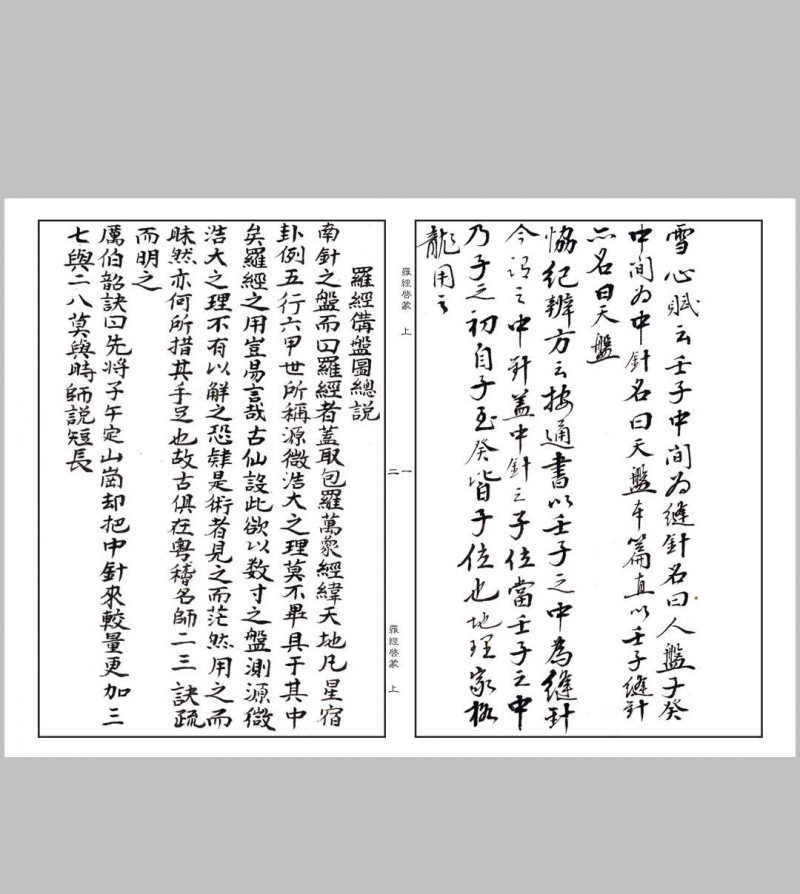 雪心賦云壬子中间为缝針名曰人盤子癸
中间为中針名曰天盤本篇直以壬子缝針
亦名曰天盤
協纪辨方云按通書以壬子之中為縫針
今謂之中針盖中針之子位當壬子之中
乃子之初自子至癸皆子位也地理家格
龍用之
羅經啓蒙 上
一
二
羅經啓蒙 上
羅經備盤圖總説
南針之盤而曰羅經者蓋取包羅萬象經緯天地凡星宿
卦例五行六甲世所稱源微浩大之理莫不畢具于其中
矣羅經之用豈易言哉古仙設此欲以数寸之盤測源微
浩大之理不有以解之恐肄是術者見之而茫然用之而
昧然亦何所措其手足也故古俱在粤稽名師二三訣疏
而明之
厲伯韶訣曰先將子午定山崗却把中針來較量更加三
七與二八莫與時師説短長